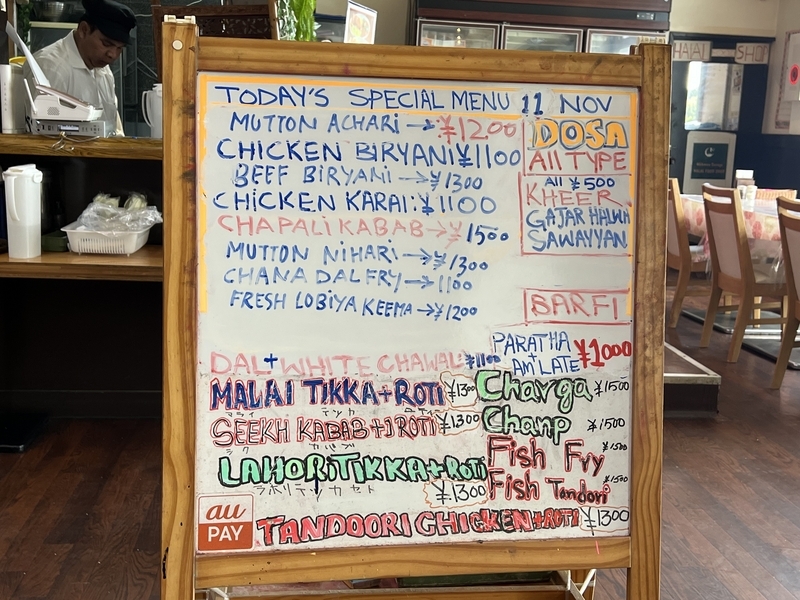 HALAL SHOP
TODAY'S SPECIAL MENU 11 NOV
MUTTON ACHARI → ¥1200
CHICKEN BIRYANI ¥1100
BEEF BIRYANI → ¥1300
CHICKEN KARAI: ¥1100
CHAPALI KABAB → ¥1500
MUTTON NIHARI → ¥1300
CHANA DAL FRY → 1100
FRESH LOBIYA KEEMA → ¥1200
DOSA
All TYPE
All ¥500
KHEER
GAJAR HALWA
SAWAYYAN
BARFI
PARATHA
+
AMLATE
¥1000
DAL + WHITE CHAWAL: ¥1100
MALAI TIKKA + ROTI ¥1300
SEEKH KABAB + 1 ROTI ¥1300
LAHORI TIKKA + ROTI
¥1300
TANDOORI CHICKEN + ROTI ¥1300
Charga ¥1500
Chanp ¥1500
Fish Fry ¥1500
Fish Tandori ¥1500
au
PAY